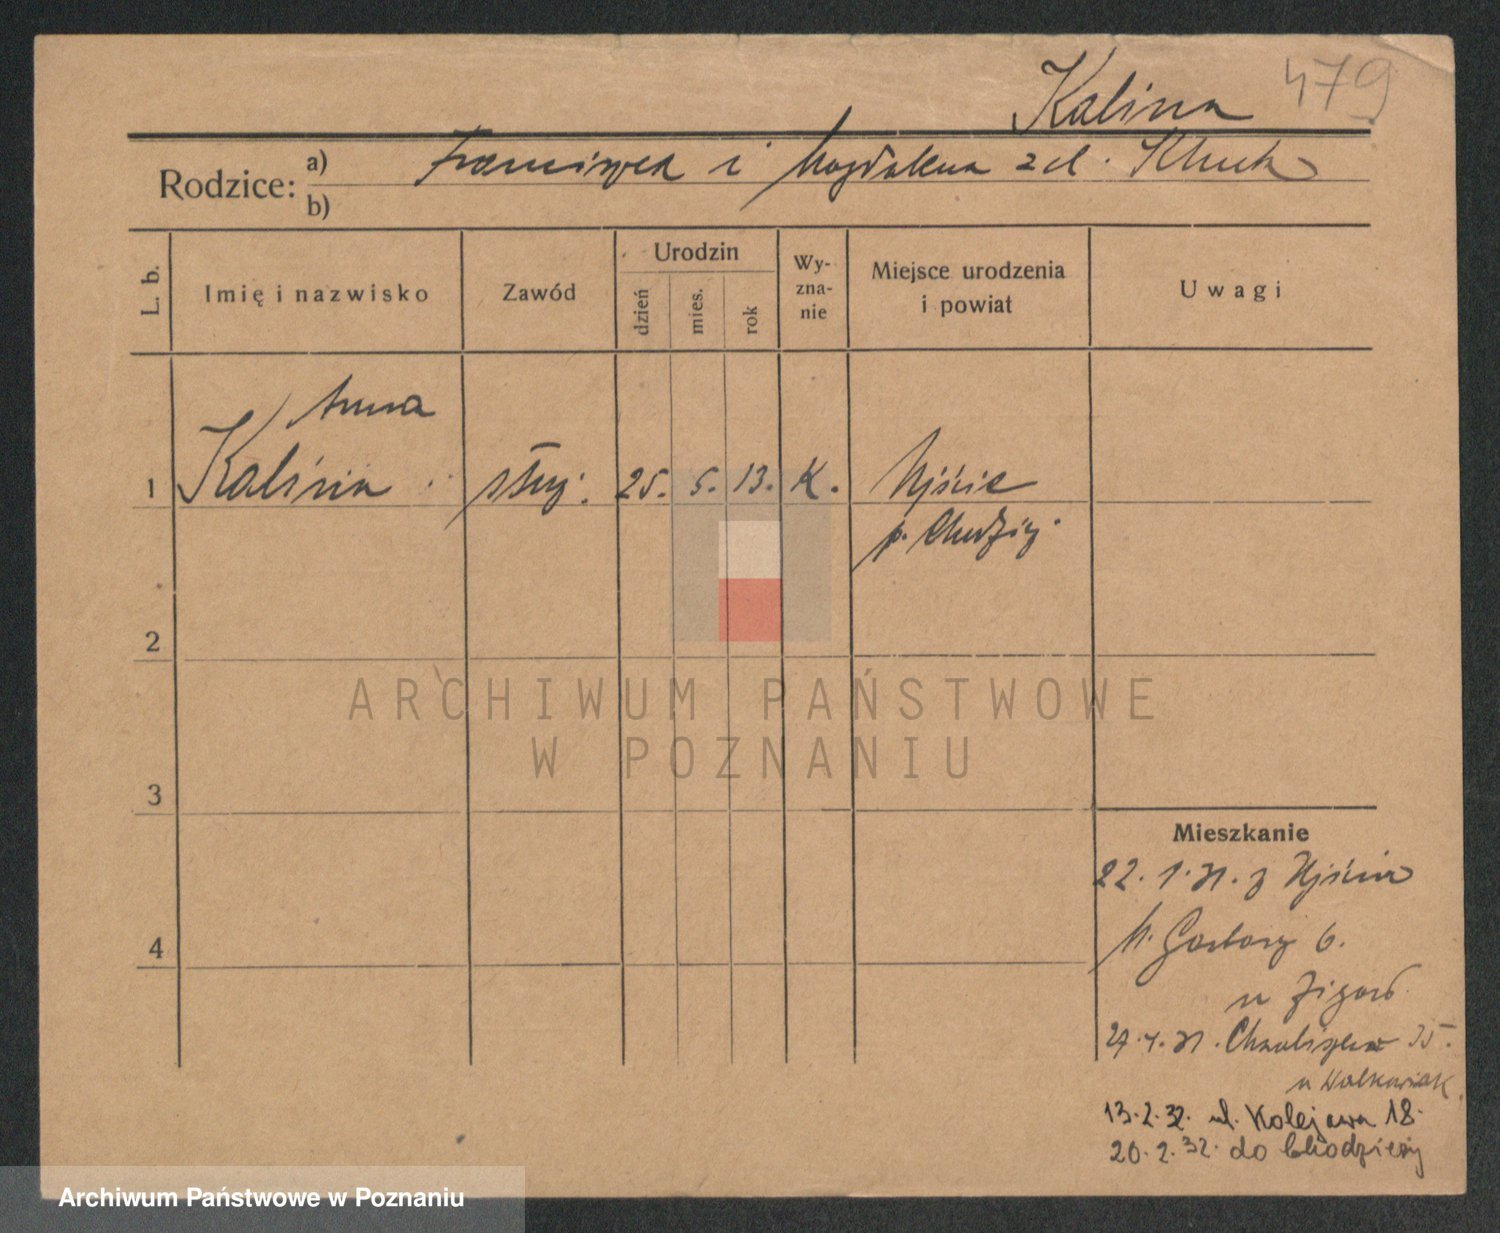 Kalina 479
Rodzice: a) Franciszek i Magdalena z d. Kluck
b)
L. b. Imię i nazwisko Zawód Urodzin dzień mies. rok Wy-zna-nie Miejsce urodzenia i powiat Uwagi
Anna
1 Kalina służ. 25. 5. 13. K. Ujście
p. Chodzież
2
ARCHIWUM PAŃSTWOWE
W POZNANIU
3
Mieszkanie
22. 1. 31. z Ujścia
4 W. Garbary 6.
u
31. 35.
u Walkowiak
13. 2. 32. ul. Kolejowa 18.
20. 2. 32. do Chodzieży
Archiwum Państwowe w Poznaniu